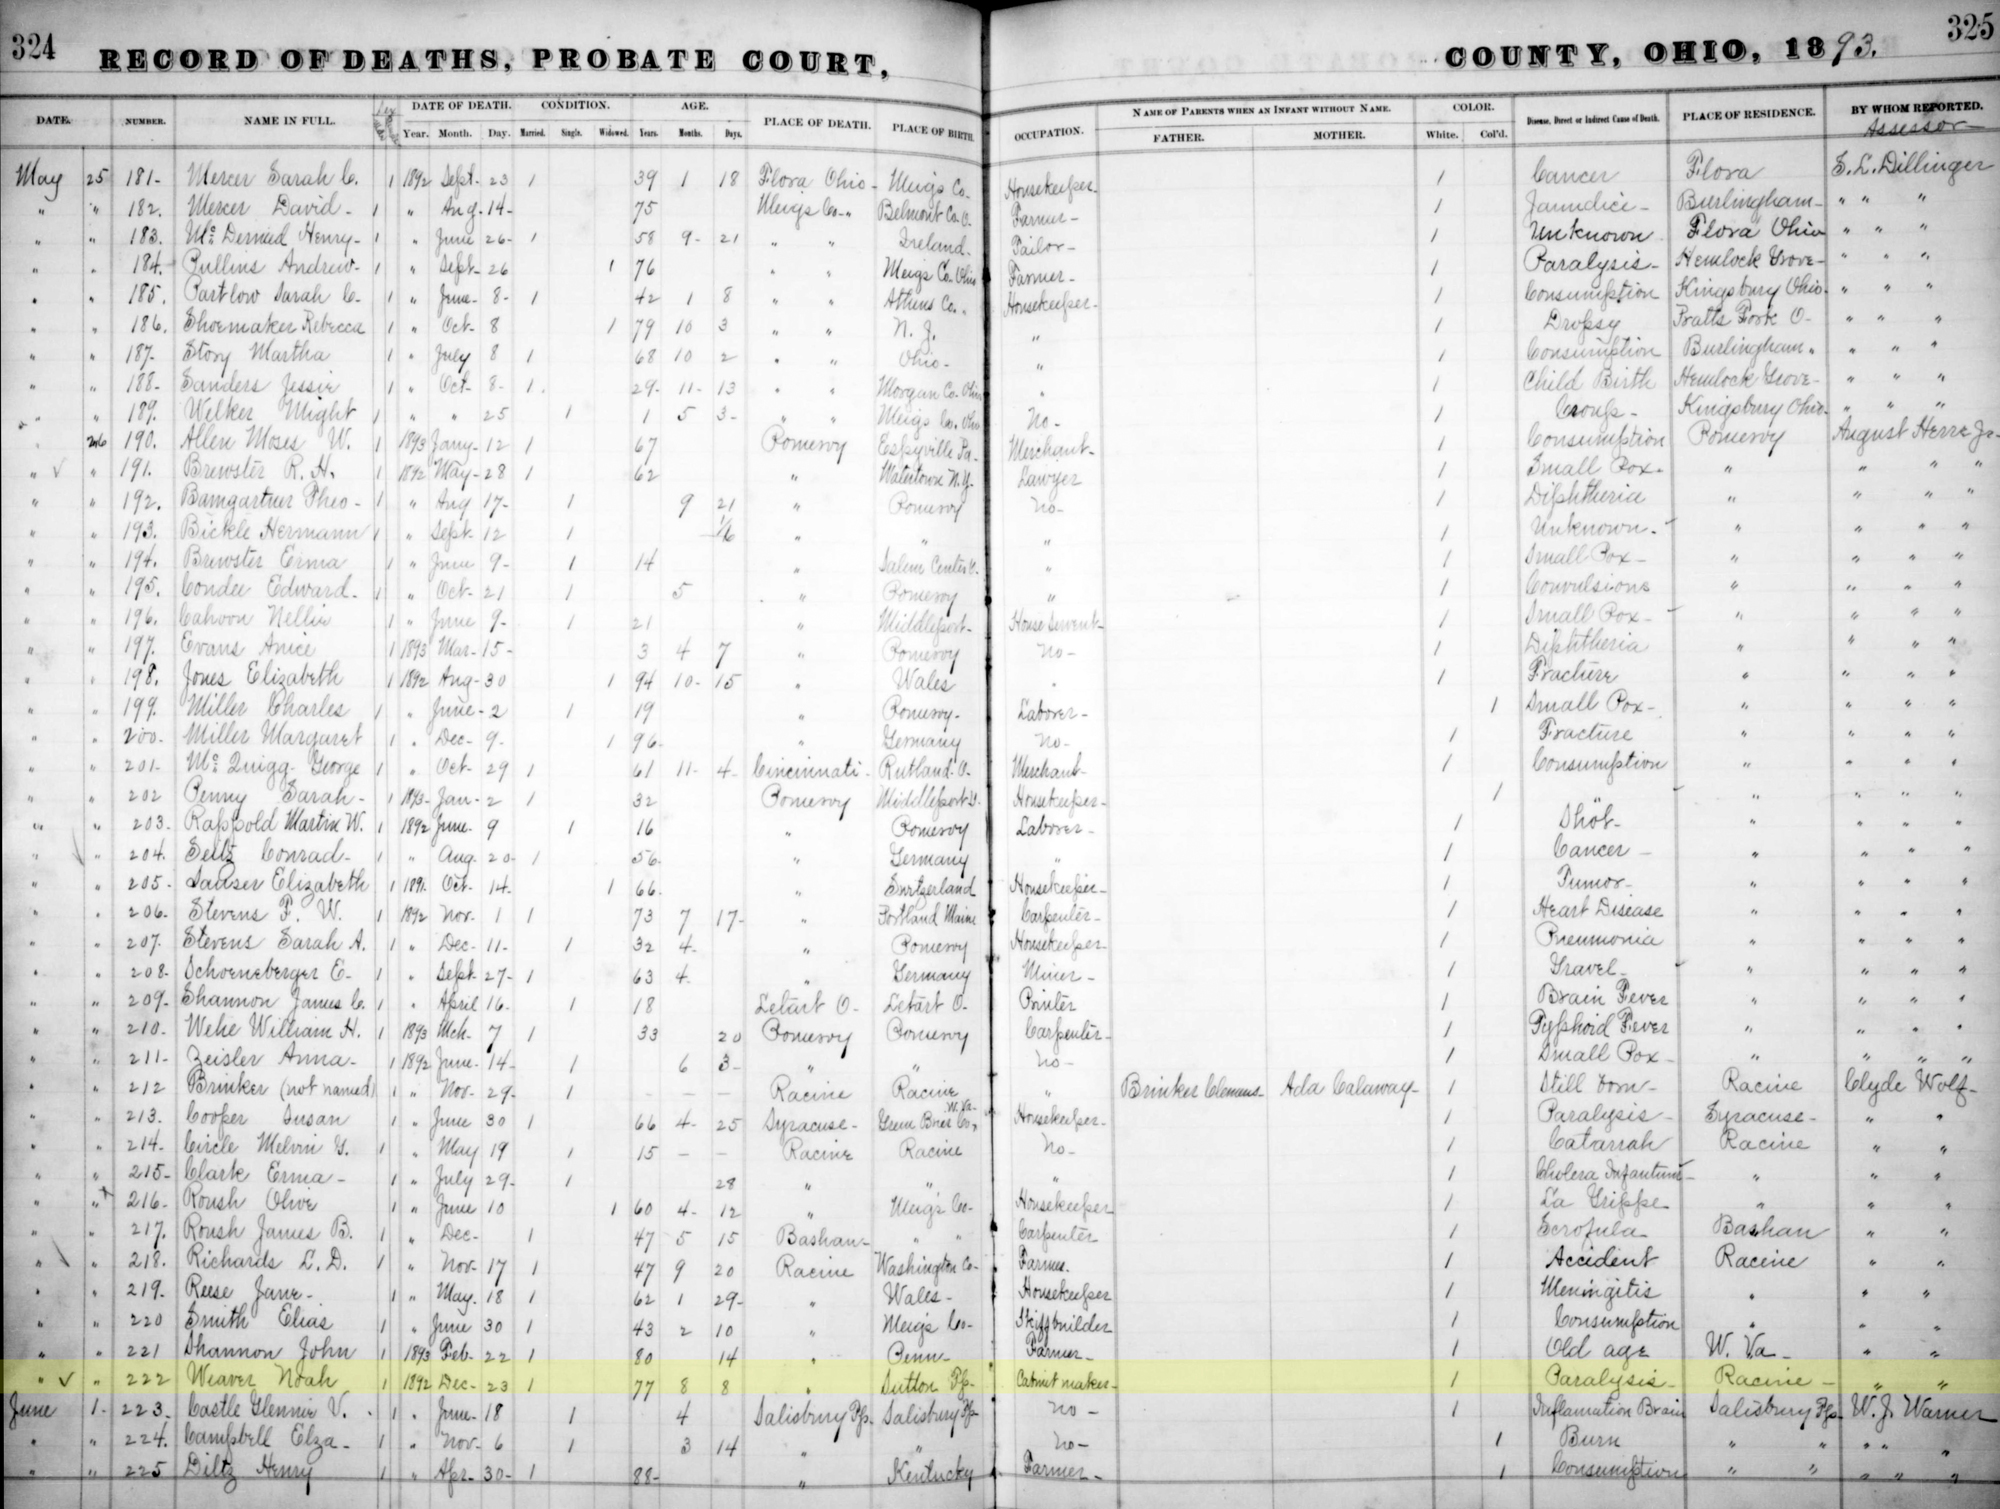 324
RECORD OF DEATHS, PROBATE COURT,
COUNTY, OHIO, 1893.
325
DATE. NUMBER. NAME IN FULL. DATE OF DEATH. CONDITION. AGE. PLACE OF DEATH. PLACE OF BIRTH. OCCUPATION. NAME OF PARENTS WHEN AN INFANT WITHOUT NAME. COLOR. Disease, Direct or Indirect Cause of Death. PLACE OF RESIDENCE. BY WHOM REPORTED.
Year. Month. Day. Married. Single. Widowed. Years. Months. Days. FATHER. MOTHER. White. Col'd. Assessor
May 25 181 Mercer Sarah C. 1 1892 Sept. 23 1 39 1 18 Flora Ohio Meigs Co. Housekeeper 1 Cancer Flora S. L. Dillinger
" " 182. Mercer David 1 " Aug. 14 75 Meigs Co. " Belmont Co. O. Farmer 1 Jaundice Burlingham " " "
" " 183. Mc Dermed Henry 1 " June 26 1 58 9 21 " " Ireland Tailor 1 Unknown Flora Ohio " " "
" " 184. Pullins Andrew 1 " Sept 26 1 76 " " Meigs Co. Ohio Farmer 1 Paralysis Hemlock Grove " " "
" " 185. Partlow Sarah C. 1 " June 8 1 42 1 8 " " Athens Co. " Housekeeper 1 Consumption Kingsbury Ohio " " "
" " 186. Shoemaker Rebecca 1 " Oct 8 1 79 10 3 " " N. J. " 1 Dropsy Pratts Fork O " " "
" " 187 Story Martha 1 " July 8 1 68 10 2 " " Ohio " 1 Consumption Burlingham " " " "
" " 188 Sanders Jessie 1 " Oct 8 1 29 11 13 " " Morgan Co. Ohio " 1 Child Birth Hemlock Grove " " "
" " 189. Welker Might 1 " " 25 1 1 5 3 " " Meigs Co. Ohio No 1 Croup Kingsbury Ohio " " "
" 26 190. Allen Moses W. 1 1893 Jany 12 1 67 Pomeroy Espyville Pa. Merchant 1 Consumption Pomeroy August Herre Jr
" ✓ " 191. Brewster R. H. 1 1892 May 28 1 62 " Watertown N.Y. Lawyer 1 Small Pox " " " "
" " 192. Bamgartner Theo 1 " Aug 17 1 9 21 " Pomeroy No 1 Diphtheria " " " "
" " 193. Bickle Hermann 1 " Sept 12 1 1/6 " " " 1 Unknown " " " "
" " 194. Brewster Erma 1 " June 9 1 14 " Salem Center O. " 1 Small Pox " " " "
" " 195. Condee Edward 1 " Oct 21 1 5 " Pomeroy " 1 Convulsions " " " "
" " 196. Cahoon Nellie 1 " June 9 1 21 " Middleport House Servent 1 Small Pox " " " "
" " 197. Evans Anice 1 1893 Mar 15 3 4 7 " Pomeroy No 1 Diphtheria " " " "
" " 198. Jones Elizabeth 1 1892 Aug 30 1 94 10 15 " Wales " 1 Fracture " " " "
" " 199. Miller Charles 1 " June 2 1 19 " Pomeroy Laborer 1 Small Pox " " " "
" " 200. Miller Margaret 1 " Dec 9 1 96 " Germany No 1 Fracture " " " "
" " 201 Mc Quigg George 1 " Oct 29 1 61 11 4 Cincinnati Rutland O. Merchant 1 Consumption " " " "
" " 202 Penny Sarah 1 1893 Jan 2 1 32 Pomeroy Middleport O. Housekeeper 1 " " " " "
" " 203. Rappold Martin W. 1 1892 June 9 1 16 " Pomeroy Laborer 1 Shot " " " "
" " 204. Seitz Conrad 1 " Aug 20 1 56 " Germany " 1 Cancer " " " "
" " 205 Sauser Elizabeth 1 1891 Oct. 14 1 66 " Switzerland Housekeeper 1 Tumor " " " "
" " 206 Stevens F. W. 1 1892 Nov. 1 1 73 7 17 " Portland Maine Carpenter 1 Heart Disease " " " "
" " 207. Stevens Sarah A. 1 " Dec 11 1 32 4 " Pomeroy Housekeeper 1 Pneumonia " " " "
" " 208 Schoeneberger E 1 " Sept 27 1 63 4 " Germany Miner 1 Gravel " " " "
" " 209 Shannon James C. 1 " April 16 1 18 Letart O Letart O. Printer 1 Brain Fever " " " "
" " 210 Wehe William H. 1 1893 Mch 7 1 33 20 Pomeroy Pomeroy Carpenter 1 Typhoid Fever " " " "
" " 211 Zeisler Anna 1 1892 June 14 1 6 3 " " No 1 Small Pox " " " "
" " 212 Brinker (not named) 1 " Nov 29 1 – – – Racine Racine " Brinker Clemens Ada Calaway 1 Still born Racine Clyde Wolf
" " 213. Cooper Susan 1 " June 30 1 66 4 25 Syracuse Green Brier Co. W. Va. Housekeeper 1 Paralysis Syracuse " "
" " 214 Circle Melvin G. 1 " May 19 1 15 – – Racine Racine No 1 Catarrah Racine " "
" " 215 Clark Erma 1 " July 29 1 28 " " " 1 Cholera Infantum " " "
" " 216 Roush Olive 1 " June 10 1 60 4 12 " Meigs Co. Housekeeper 1 La Grippe " " "
" " 217. Roush James B. 1 " Dec 1 47 5 15 Bashan " " Carpenter 1 Scrofula Bashan " "
" " 218. Richards L. D. 1 " Nov 17 1 47 9 20 Racine Washington Co Farmer 1 Accident Racine " "
" " 219. Reese Jane 1 " May 18 1 62 1 29 " Wales Housekeeper 1 Meningitis " " "
" " 220 Smith Elias 1 " June 30 1 43 2 10 " Meigs Co Skiffbuilder 1 Consumption " " "
" " 221 Shannon John 1 1893 Feb 22 1 80 14 " Penn Farmer 1 Old age W. Va " "
" ✓ " 222 Weaver Noah 1 1892 Dec 23 1 77 8 8 " Sutton Tp. Cabinet maker 1 Paralysis Racine " "
June 1 223 Castle Glennie V. 1 " June 18 1 4 Salisbury Tp. Salisbury Tp. No 1 Inflamation Brain Salisbury Tp. W. J. Warner
" " 224. Campbell Elza 1 " Nov 6 1 3 14 " " No 1 Burn " " " " "
" " 225 Diltz Henry 1 " Apr 30 1 88 " Kentucky Farmer 1 Consumption " " " " "